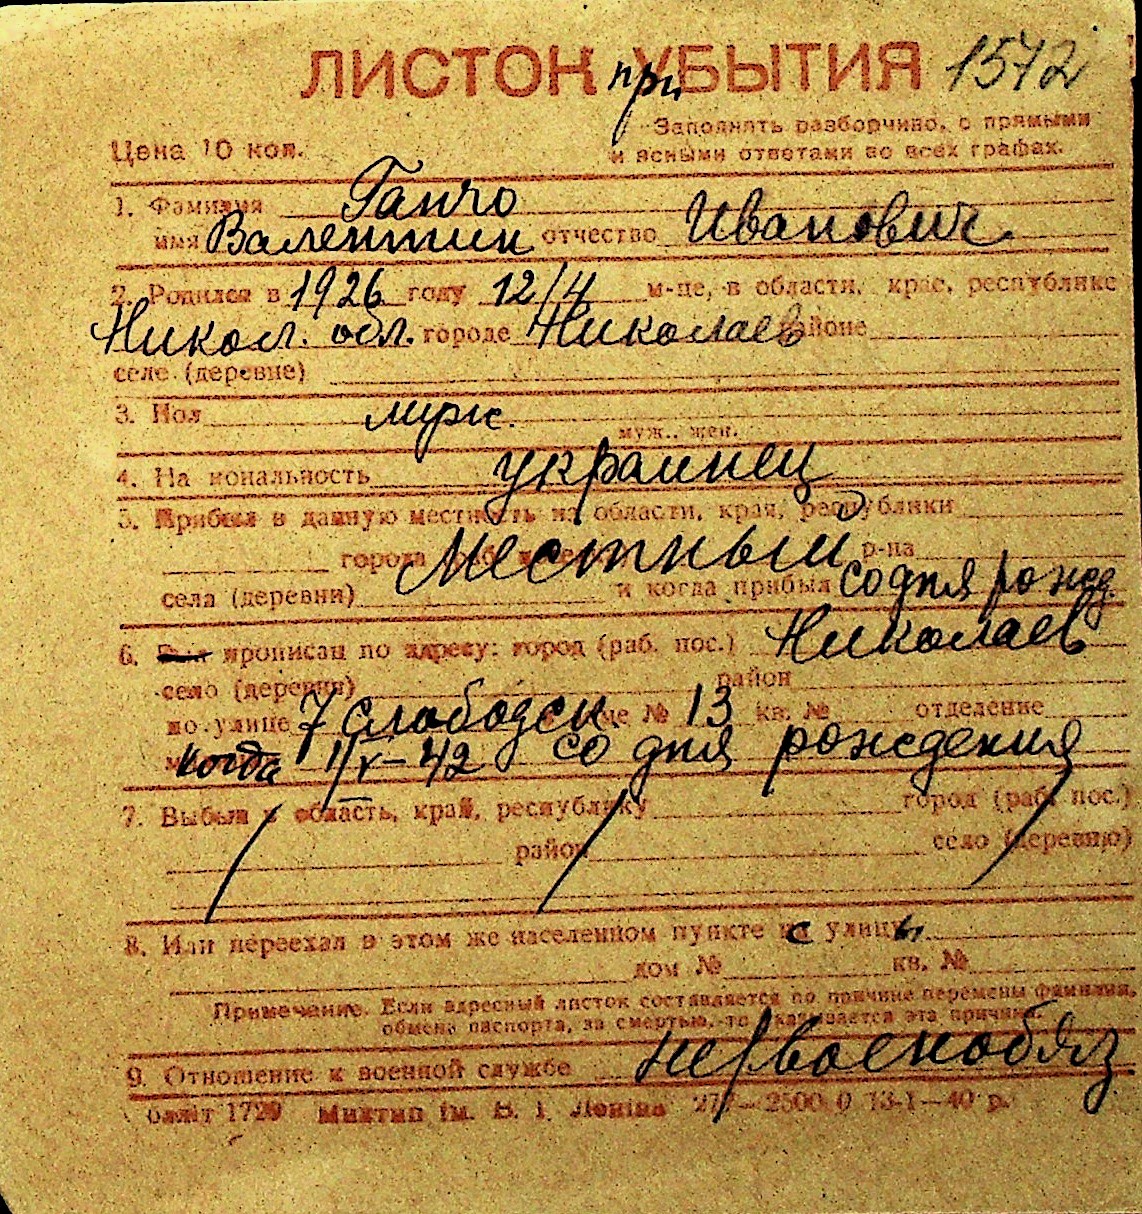 ЛИСТОК при УБЫТИЯ 1572
Заполнять разборчиво, с прямыми
Цена 10 коп. и ясными ответами во всех графах.
1. Фамилия Ганчо
имя Валентин отчество Иванович
2. Родился в 1926 году 12/4 м-це, в области, крае, республике
Никол. обл. городе Николаев районе
селе (деревне)
3. Пол муж.
муж., жен.
4. Национальность украинец
5. Прибыл в данную местность из области, края, республики
города Местный р-на
села (деревни) и когда прибыл со дня рожд.
6. прописан по адресу: город (раб. пос.) Николаев
село (деревня) район
по улице 7 Слободск. № 13 кв. № отделение
когда 1/V-42 со дня рождения
7. Выбыл в область, край, республику город (раб. пос.)
район село (деревню)
8. Или переехал в этом же населенном пункте с улицы
дом № кв. №
Примечание. Если адресный листок составляется по причине перемены фамилии,
обмена паспорта, за смертью, то указывается эта причина.
9. Отношение к военной службе невоенобяз
1720 Миктип ім. В. І. Леніна 2500 13-1-40 р.